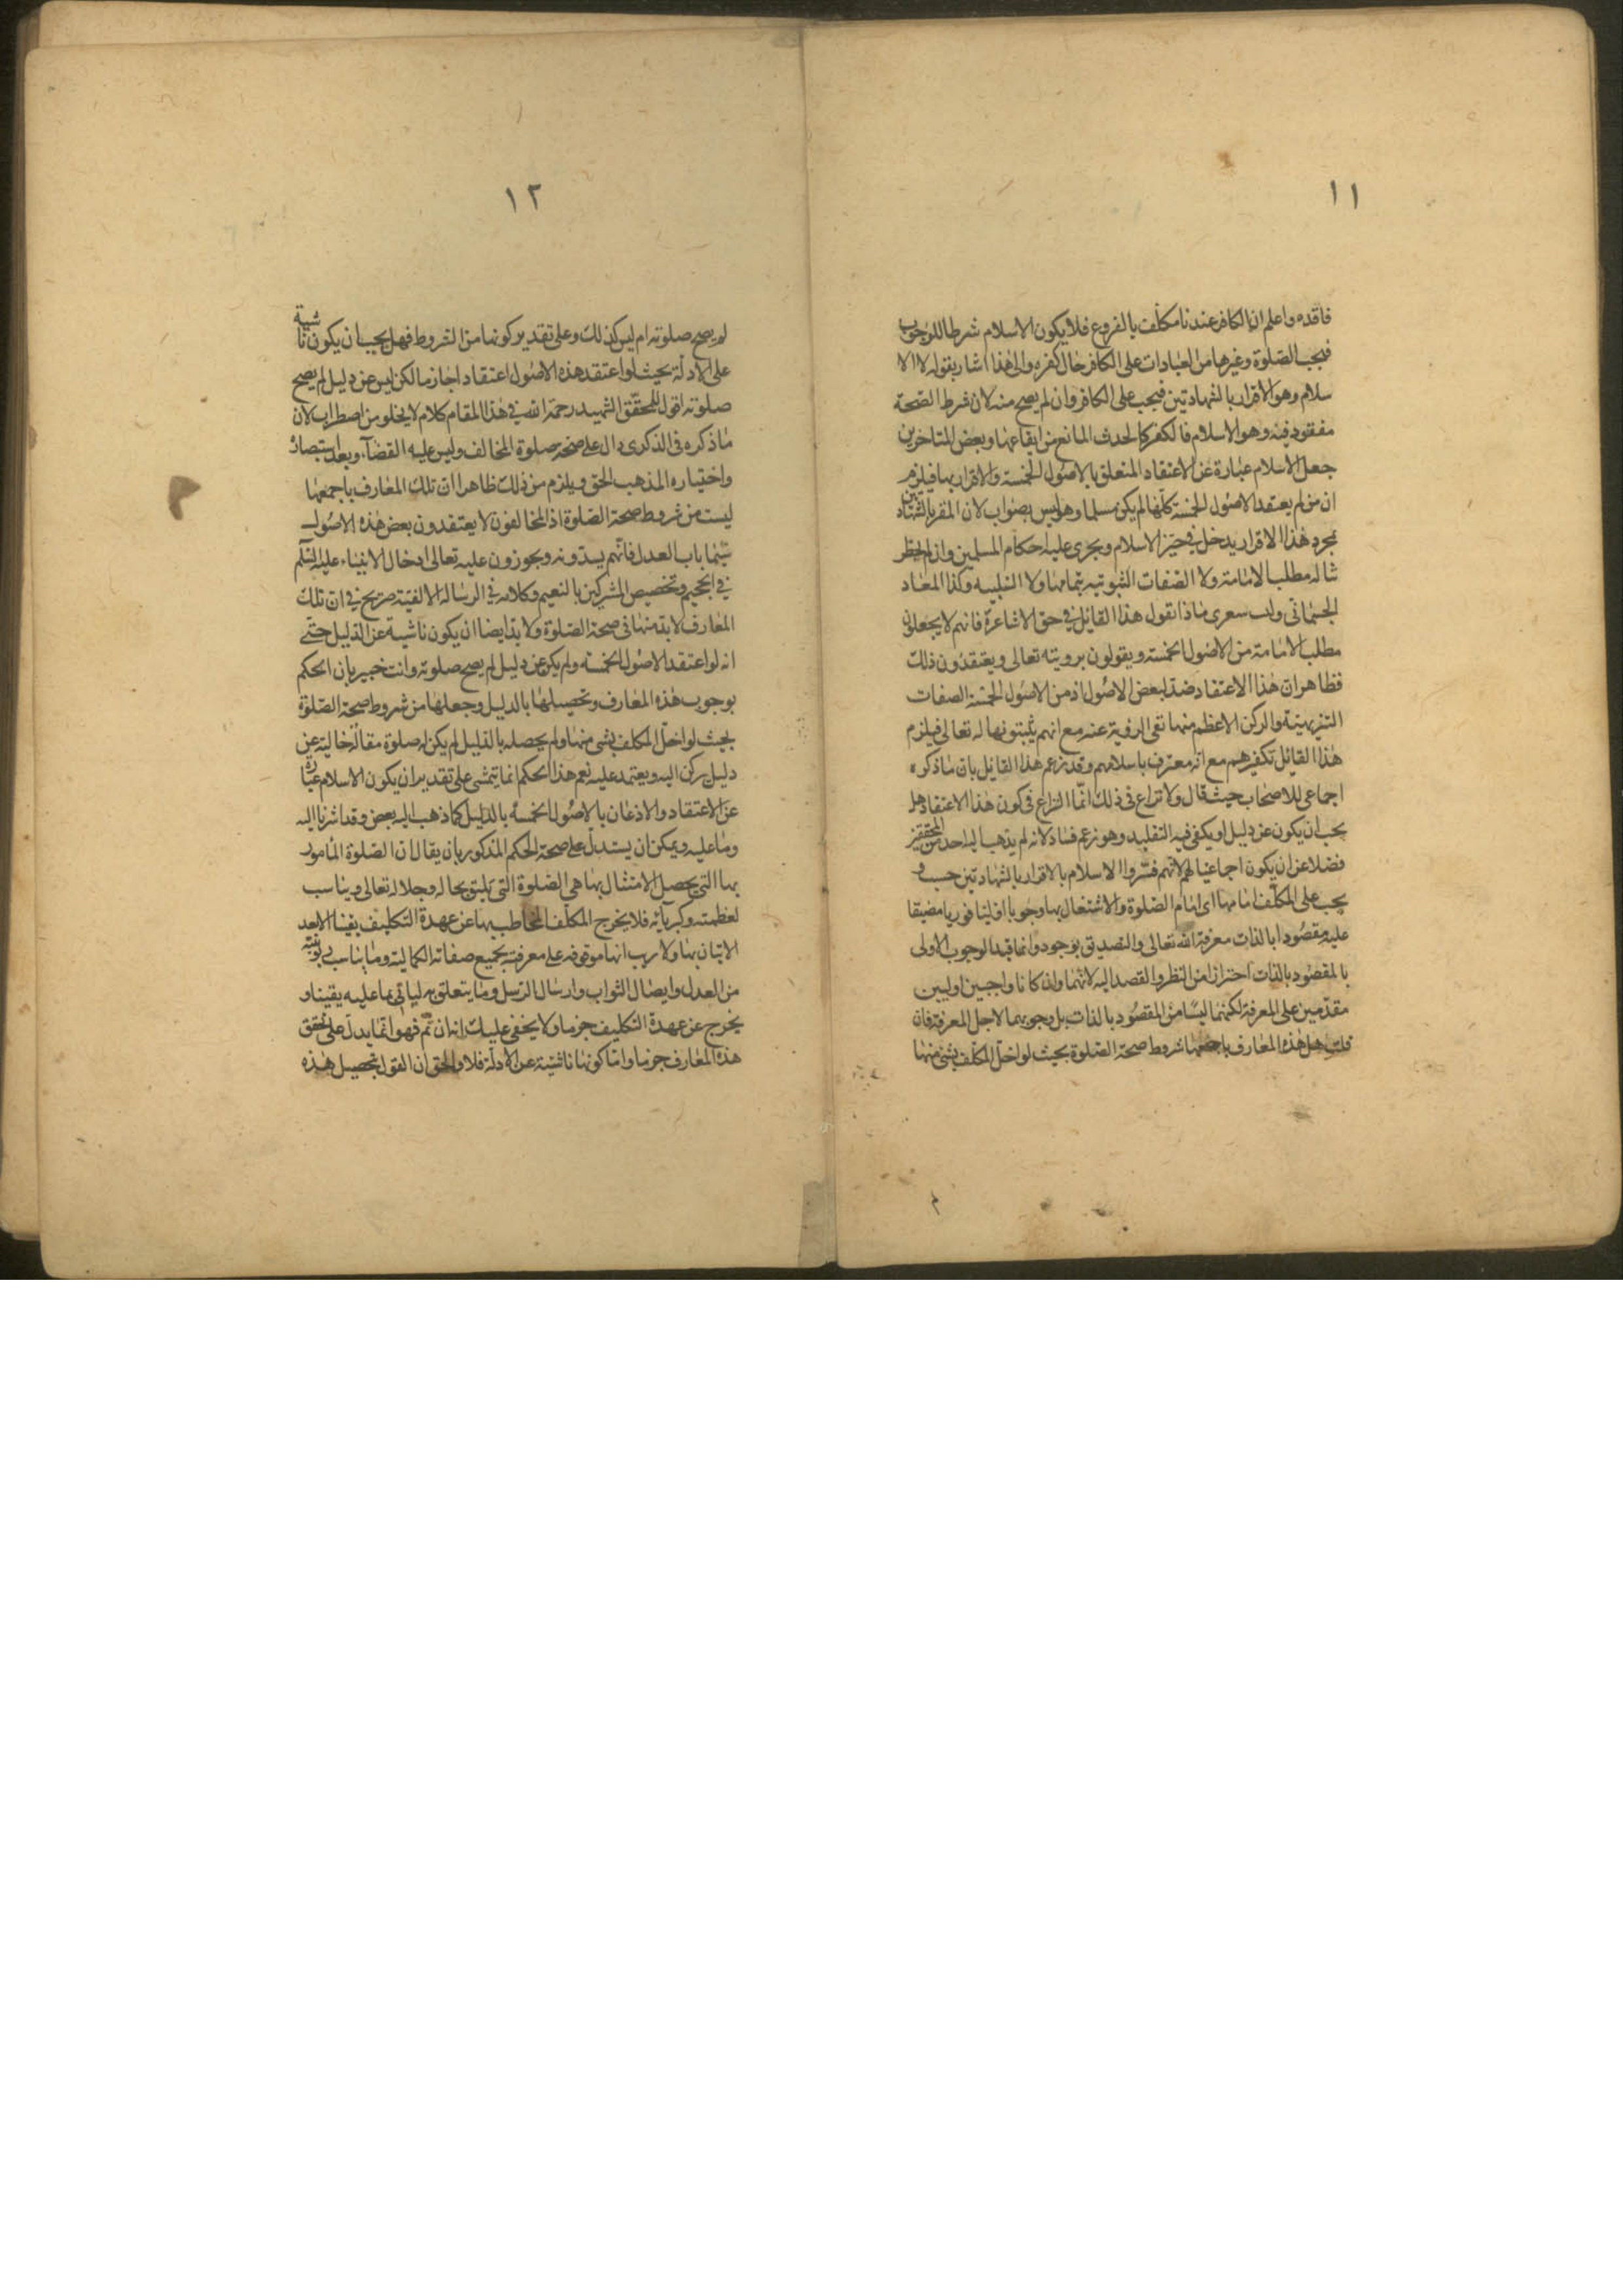 ١١
فاقده واعلم ان الكافر عندنا مكلف بالفروع فلا يكون الاسلام شرطا للوجوب
فيجب الصلوة وغيرها من العبادات على الكافر حال كفره والى هذا اشار بقوله لا الا
سلام وهو الاقرار بالشهادتين فيجب على الكافر وان لم يصح منه لان شرط الصحة
مفقود فيه وهو الاسلام فالكفر كالحدث المانع من ايقاعها وبعض المتاخرين
جعل الاسلام عبارة عن الاعتقاد المتعلق بالاصول الخمسة والاقرار بها فيلزم
ان من لم يعتقد الاصول الخمسة كلها لم يكن مسلما وهو ليس بصواب لان المقر بالشهادتين
بمجرد هذا الاقرار يدخل في حيز الاسلام ويجرى عليه احكام المسلمين وان لم يخطر
بباله مطلب الامامة ولا الصفات الثبوتيه بتمامها ولا السلبيه وكذا المعاد
الجسمانى وليت شعرى ماذا تقول هذا القائل في حق الاشاعرة فانهم لا يجعلون
مطلب الامامة من الاصول الخمسة ويقولون برويته تعالى ويعتقدون ذلك
فظاهر ان هذا الاعتقاد ضد لبعض الاصول اذ من الاصول الخمسة الصفات
التنزيهية والركن الاعظم منها نفى الروية عنه مع انهم يثبتونها له تعالى فيلزم
هذا القائل تكفيرهم مع انه معترف باسلامهم وقد زعم هذا القائل بان ماذكره
اجماعى للاصحاب حيث قال ولا نزاع فى ذلك انما النزاع فى كون هذا الاعتقاد هل
يجب ان يكون عن دليل او يكفى فيه التقليد وهو زعم فساد لانه لم يذهب اليه احد من المحققين
فضلا عن ان يكون اجماعيا لهم لانهم فسروا الاسلام بالاقرار بالشهادتين حسب و
يجب على المكلف امامها اى امام الصلوة والاشتغال بها وجوبا اوليا فوريا مضيقا
عليه مقصودا بالذات معرفة الله تعالى والتصديق بوجوده وانما قيد الوجوب الاولى
بالمقصود بالذات احترازا من النظر والقصد اليه لانهما وان كانا واجبين اوليين
مقدمين على المعرفة لكنهما ليسا من المقصود بالذات بل وجوبهما لاجل المعرفة فان
قلت هل هذه المعارف باجمعها شروط صحة الصلوة بحيث لو اخل المكلف بشئ منها
١٢
لم يصح صلوته ام ليس كذلك وعلى تقدير كونها من الشروط فهل يجب ان يكون ناشية
على الادلة بحيث لو اعتقد هذه الاصول اعتقادا جازما لكن ليس عن دليل لم يصح
صلوته اقول للمحقق الشهيد رحمة الله في هذا المقام كلام لا يخلو من اضطراب لان
ماذكره فى الذكرى دال على صحة صلوة المخالف وليس عليه القضاء وبعد استبصاره
واختياره المذهب الحق ويلزم من ذلك ظاهرا ان تلك المعارف باجمعها
ليست من شروط صحة الصلوة اذ المخالفون لا يعتقدون بعض هذه الاصول
سيما باب العدل فانهم يسدونه ويجوزون عليه تعالى ادخال الانبياء عليه السلم
في الجحيم وتخصيص المشركين بالنعيم وكلامه في الرسالة الالفية صريح في ان تلك
المعارف لا بد منها فى صحة الصلوة ولا بد ايضا ان يكون ناشية عن الدليل حتى
انه لو اعتقد الاصول الخمسة ولم يكن عن دليل لم يصح صلوته وانت خبير بان الحكم
بوجوب هذه المعارف وتحصيلها بالدليل وجعلها من شروط صحة الصلوة
بحيث لو اخل المكلف بشئ منها ولم يحصله بالدليل لم يكن له صلوة مقالة خالية عن
دليل يركن اليه ويعتمد عليه نعم هذا الحكم انما يتمشى على تقدير ان يكون الاسلام عبارة
عن الاعتقاد والاذعان بالاصول الخمسة بالدليل كما ذهب اليه بعض وقد اشرنا اليه
وما عليه ويمكن ان يستدل على صحة الحكم المذكور بان يقال ان الصلوة المامور
بها التى يحصل الامتثال بها هى الصلوة التى تليق بحاله وجلاله تعالى ويناسب
لعظمته وكبريائه فلا يخرج المكلف المخاطب بها عن عهدة التكليف يقينا الا بعد
الاتيان بها ولا ريب انها موقوفه على معرفته بجميع صفاته الكمالية وما يناسب ربوبيته
من العدل وايصال الثواب وارسال الرسل وما يتعلق به لياتى بما عليه يقينا و
يخرج عن عهدة التكليف جزما ولا يخفى عليك انه ان تم فهو انما يدل على تحقق
هذه المعارف جزما واما كونها ناشئة عن الادلة فلا والحق ان القول بتحصيل هذه